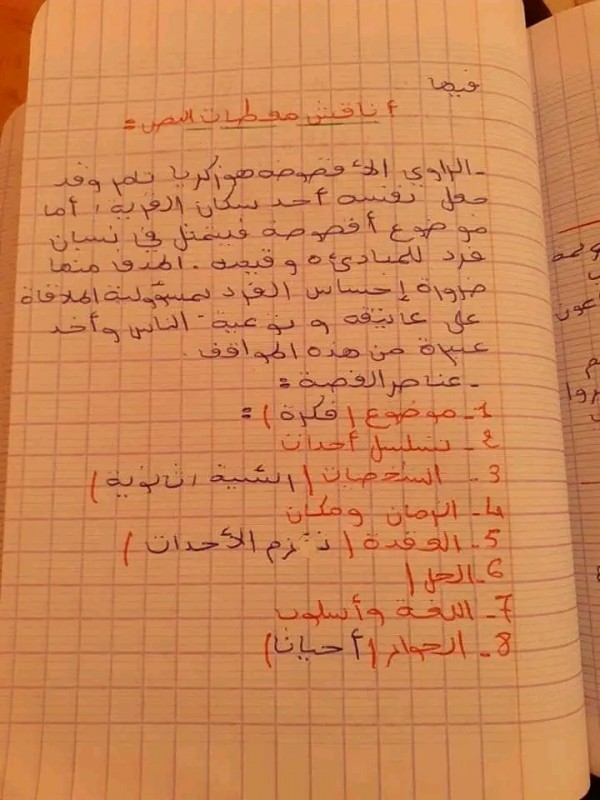 فيها
أناقش معطيات النص:
- الراوي الأقصوصة هو زكريا تامر وقد
جعل نفسه أحد سكان القرية، أما
موضوع أقصوصة فيتمثل في نسيان
فرد للمبادئه وقيمه. الهدف منها
ضرورة إحساس الفرد بمسؤولية الملاقاة
على عاتقه وتوعية الناس وأخد
عبرة من هذه المواقف.
- عناصر القصة:
1- موضوع (فكرة):
2- تسلسل أحداث
3- الشخصيات (
4- الزمان ومكان
5- العقدة (تأزم الأحداث)
6- الحل (
7- اللغة وأسلوب
8- الحوار (أحيانا)